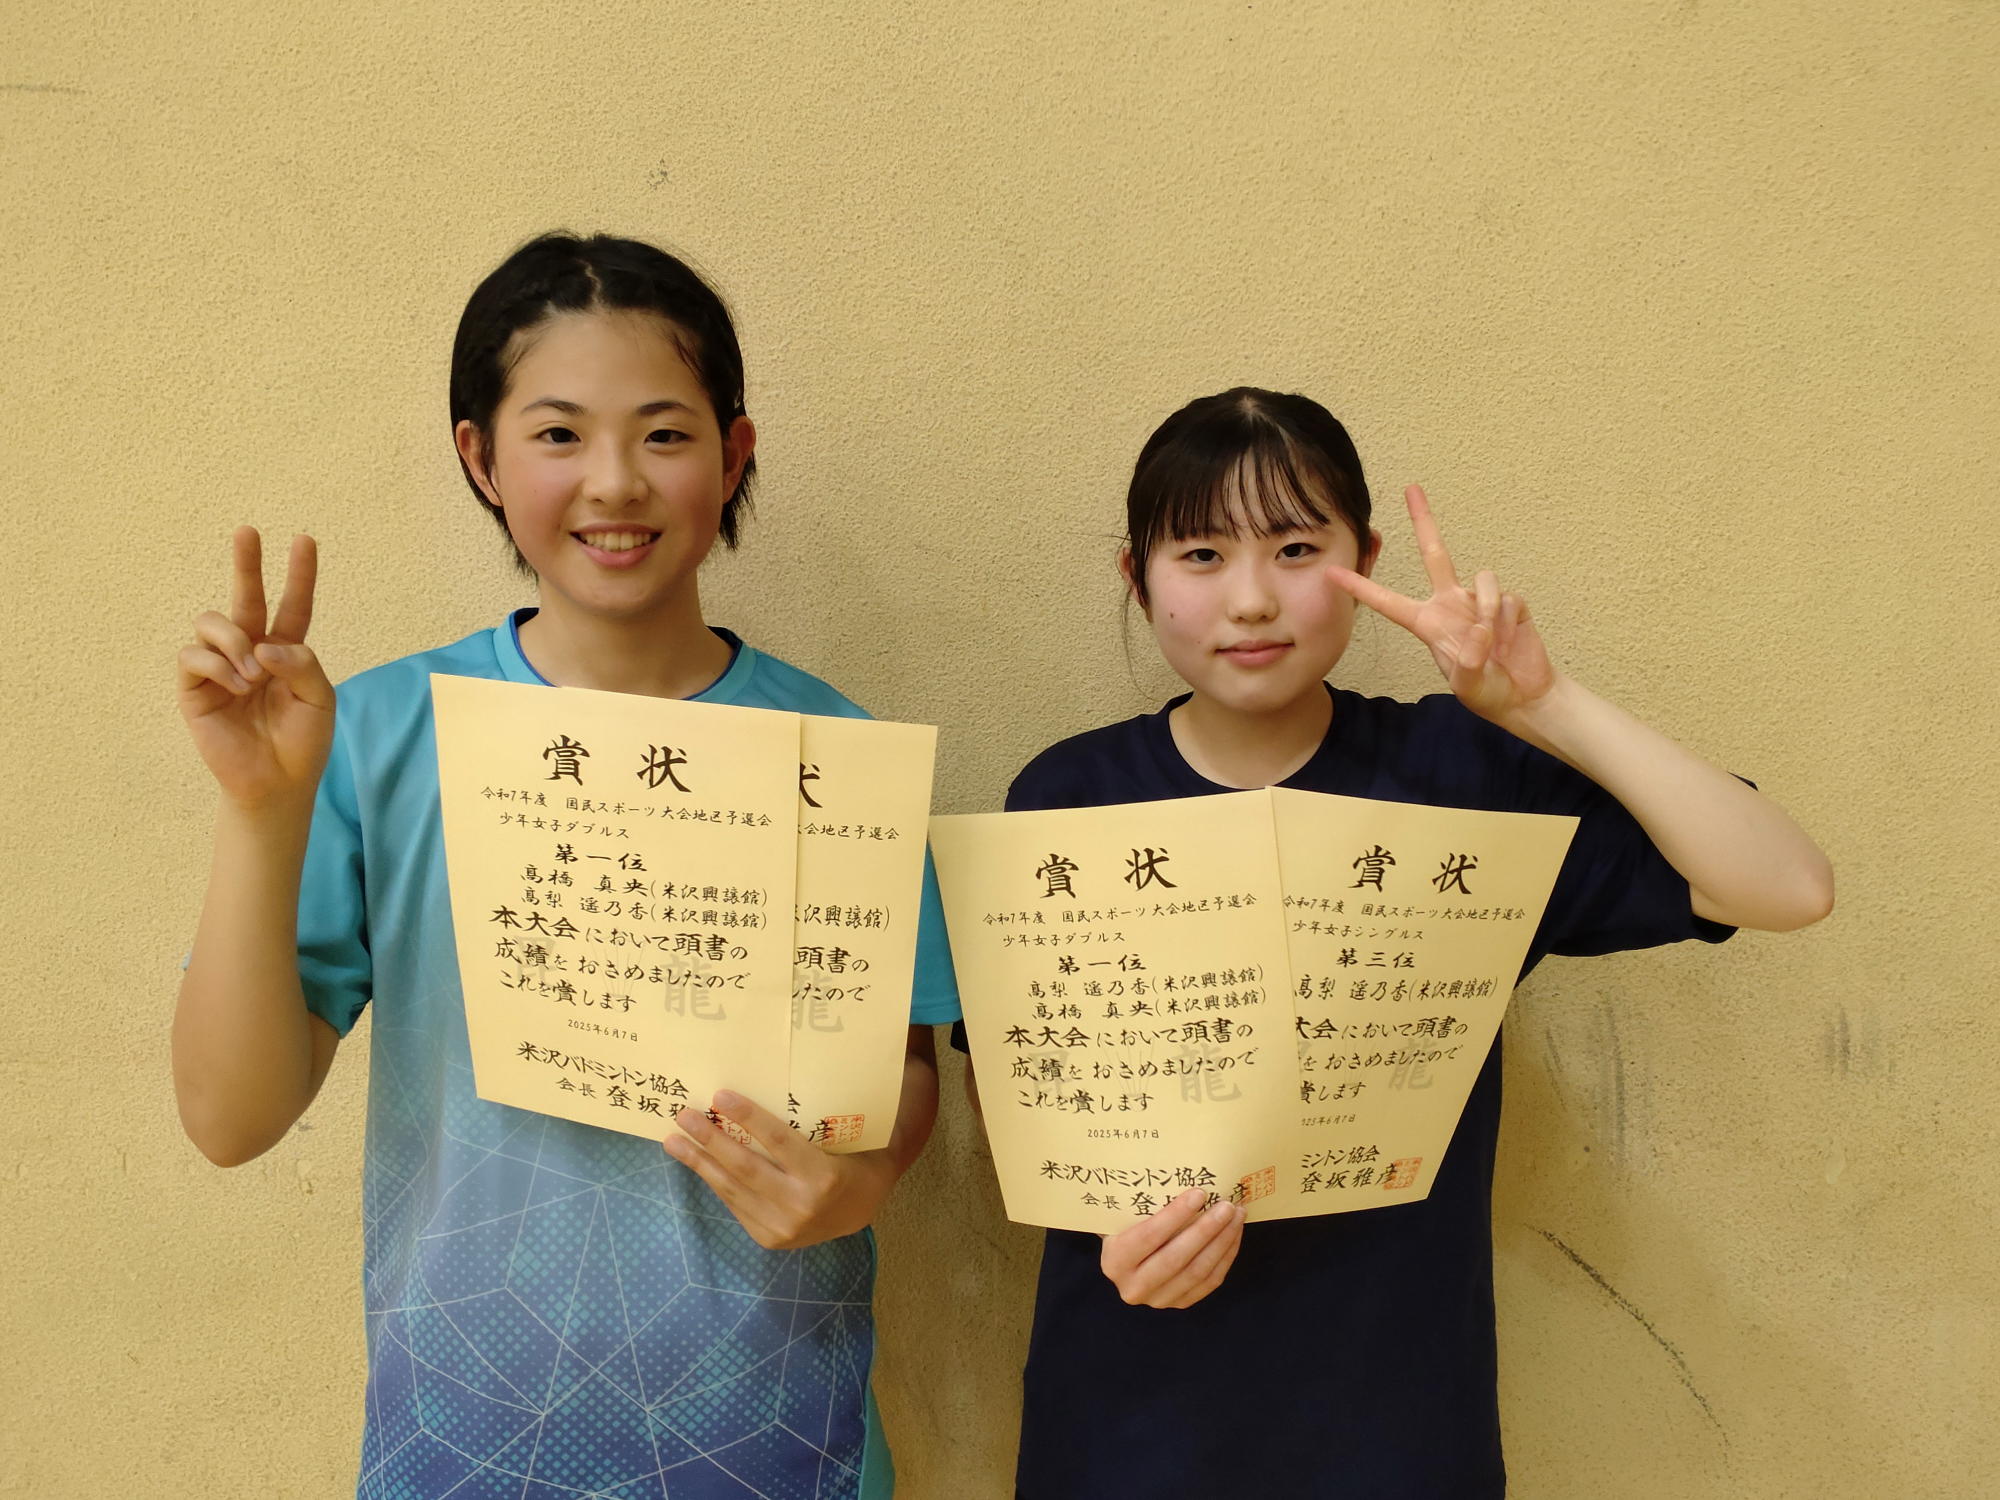 賞状
令和7年度 国民スポーツ大会地区予選会
少年女子ダブルス
第一位
髙橋 真央(米沢興譲館)
髙梨 遥乃香(米沢興譲館)
本大会において頭書の
成績をおさめましたので
これを賞します
2025年6月7日
米沢バドミントン協会
会長 登坂雅彦
状
大会地区予選会
米沢興譲館)
頭書の
したので
龍
会
雅彦
賞状
令和7年度 国民スポーツ大会地区予選会
少年女子ダブルス
第一位
髙梨 遥乃香(米沢興譲館)
髙橋 真央(米沢興譲館)
本大会において頭書の
成績をおさめましたので
これを賞します
2025年6月7日
米沢バドミントン協会
会長 登坂雅彦
賞状
令和7年度 国民スポーツ大会地区予選会
少年女子シングルス
第三位
髙梨 遥乃香(米沢興譲館)
大会において頭書の
をおさめましたので
賞します
2025年6月7日
ミントン協会
登坂雅彦